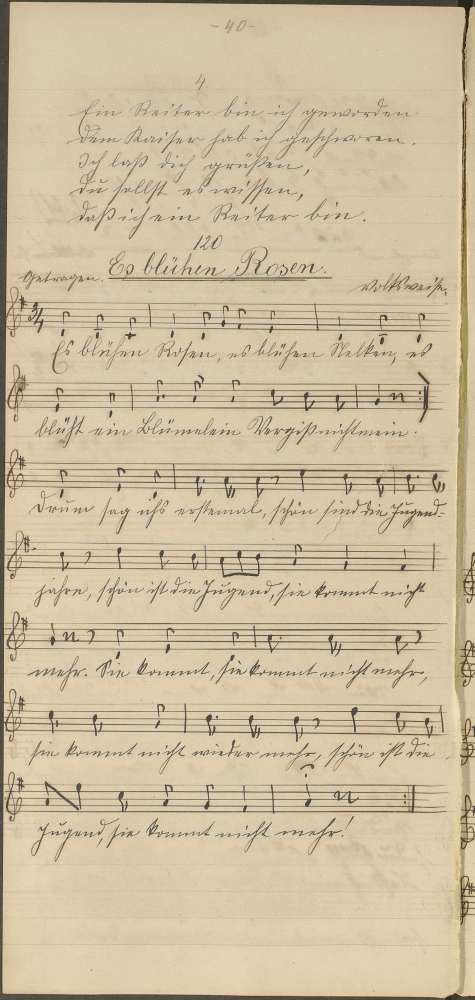 - 40 -
4
Ein Reiter bin ich geworden
dem Kaiser hab ich geschworen.
Ich laß dich grüßen,
du sollst es wissen,
daß ich ein Reiter bin.
120
Getragen. Es blühen Rosen. Volksweise.
3/4
Es blühen Rosen, es blühen Nelken, es
blüht ein Blümelein Vergißnichtmein.
Drum sag ichs erstemal, schön sind die Jugend-
jahre, schön ist die Jugend, sie kommt nicht
mehr. Sie kommt, sie kommt nicht mehr,
sie kommt nicht wieder mehr, schön ist die
Jugend, sie kommt nicht mehr!